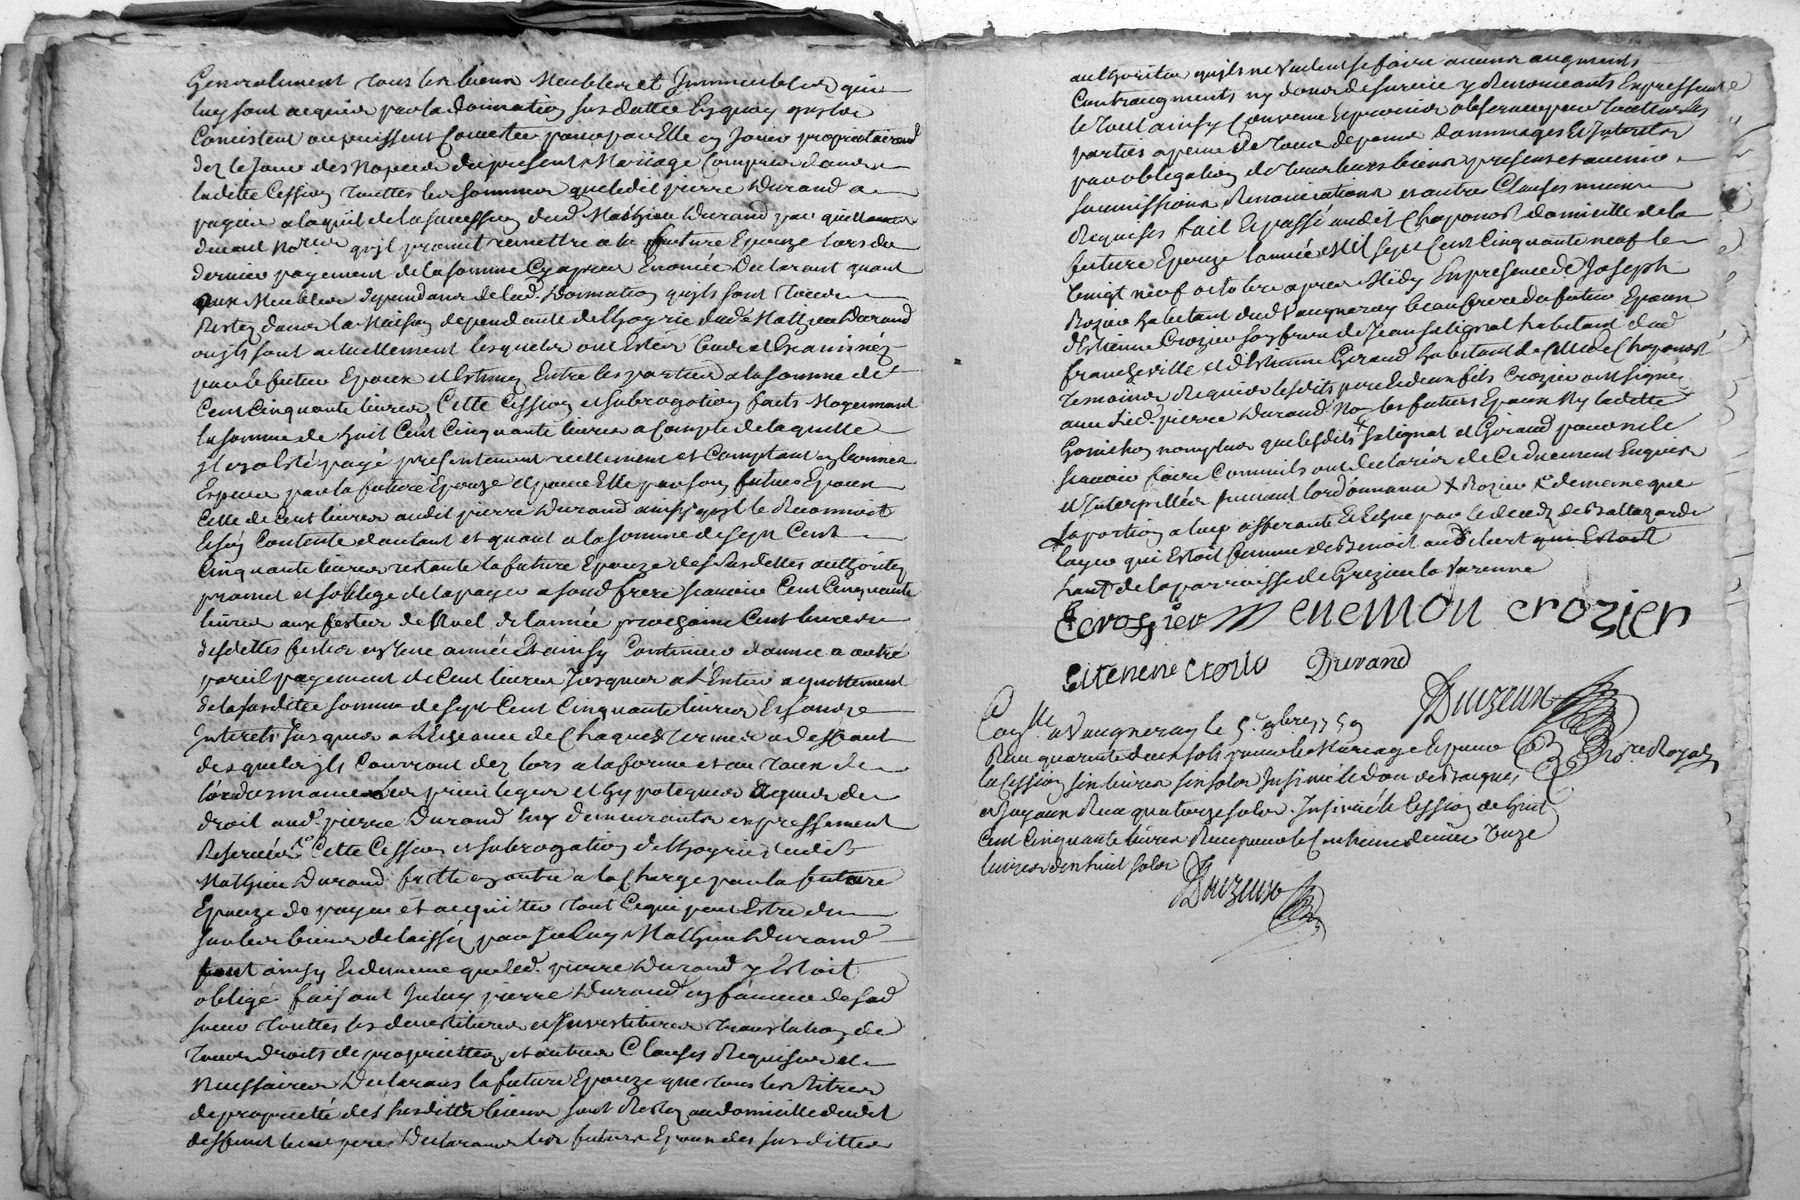 Generalement tous les biens Meubles et Immeubles qui
luy sont acquis par la donnation sus dattée En quoy qu'ils
Consistent ou puissent Consister pour par Elle en Jouir proprietairemt
dez le Jour des Nopces du present Mariage Compris dans
ladette Cession touttes les sommes que ledit pierre Durand a
payées a laquit de la succession dud Mathieu Durand par quittances
devant Nores qu'jl promet remettre a la future Epouze lors du
dernier payement de la somme Cy apres Enoncée Declarant quant
aux Meubles dependans de lad. donnation qu'jls sont tous
Restez dans la Maison dependante de l'hoyrie dud Mathieu Durand
ou jls sont actuellement lesquels ont Estés Veus et Examinez
par le futur Epoux et Estimez Entre les parties a la somme de
Cent Cinquante livres Cette Cession et subrogation faits Moyennant
la somme de huit Cent Cinquante livres a Compte de laquelle
jl en a Esté payé presentement reellement et Comptant en bonnes
Especes par la future Epouze et pour Elle par son futur Epoux
Celle de Cent livres audit pierre Durand ainsy qu'jl le Reconnoit
Et s'en Contente d'autant et quant a la somme de sept Cent
Cinquante livres restante la future Epouze de susdittes authoritez
promet et soblige de la payer a sond frere scavoir Cent Cinquante
livres aux festes de Noel de l'année prochaine Cent livres
desdettes festes en Une année Et ainsy Continuer d'année a autre
pareil payement de Cent livres Jusques a l'Entier aquittement
de la susditte somme de sept Cent Cinquante livres Et sans
Interets Jusques a l'Echeance de Chaques termes a deffaut
desquels jls Courront dez lors a la forme et au taux de
l'ordonnance Les privileges et hypoteques aquis de
droit aud. pierre Durand luy demeurants expressement
Reservés Cette Cession et subrogation de l'hoyrie dudit
Mathieu Durand faitte en outre a la Charge par la future
Epouze de payer et acquitter tout Ce qui peut Estre du
sur les biens delaissés par Jceluy Mathieu Durand
tout ainsy Et de meme que led. pierre Durand y Estoit
obligé faisant Jceluy pierre Durand en faveur de sad
soeur touttes les devestitures et Investitures translation de
tous droits de proprietté et autres Clauses Requises et
Necessaires Declarans la future Epouze que tous les titres
de proprieté des susdittes biens sont Restez au domicille dudit
deffunt leur pere Declarans les futurs Epoux des susdittes
authoritez qu'jls ne Veulent se faire aucuns augments
Contraugments ny dons de survie y Renonceants Expressemt
le tout ainsy Convenu Et promis observer par touttes les
parties a peine de tous depens dommages Et Interets
par obligation de tous leurs biens presens et avenir
soumissions Renonciations et autres Clauses mises
Requises fait Et passé audit Chaponost domicille de la
future Epouze l'année Mil sept Cent Cinquante neuf le
Vingt neuf octobre apres Midy En presence de Joseph
Rozier habitant dud Vaugneray beau frere du futur Epoux
d'Estienne Crozier son frere de Jean salignat habitant dud
francheville et d'Estienne Giraud habitant de Cedit Chaponost
temoins Requis lesdits pere Et deux fils Crozier ont signé
avec led. pierre Durand Non les futurs Epoux Ny ladette
non plus que lesdits + salignat et Giraud pour ne le
scavoir faire Comme ils ont declarés de Ce duement Enquis
et Interpellés suivant l'ordonnance + Rozier de meme que
la portion a luy afferante Et Echue par le decedz de
qui Estoit femme de Benoit
de la parroisse de Grezieu la Varenne
Crozier Menemon Crozier
Eitenene Crozier Durand
Duizeux
Contll. a Vaugneray le 5e 9bre 1759
Receu quarante deux sols pour le Mariage Et pour
la Cession six livres six sols Insinué le don de bagues,
et Joyaux Receu quatorze sols. Insinué la Cession de huit
Cent Cinquante livres Receu pour le Centieme denier onze
livres dix huit sols
Nore Royal
Duizeux